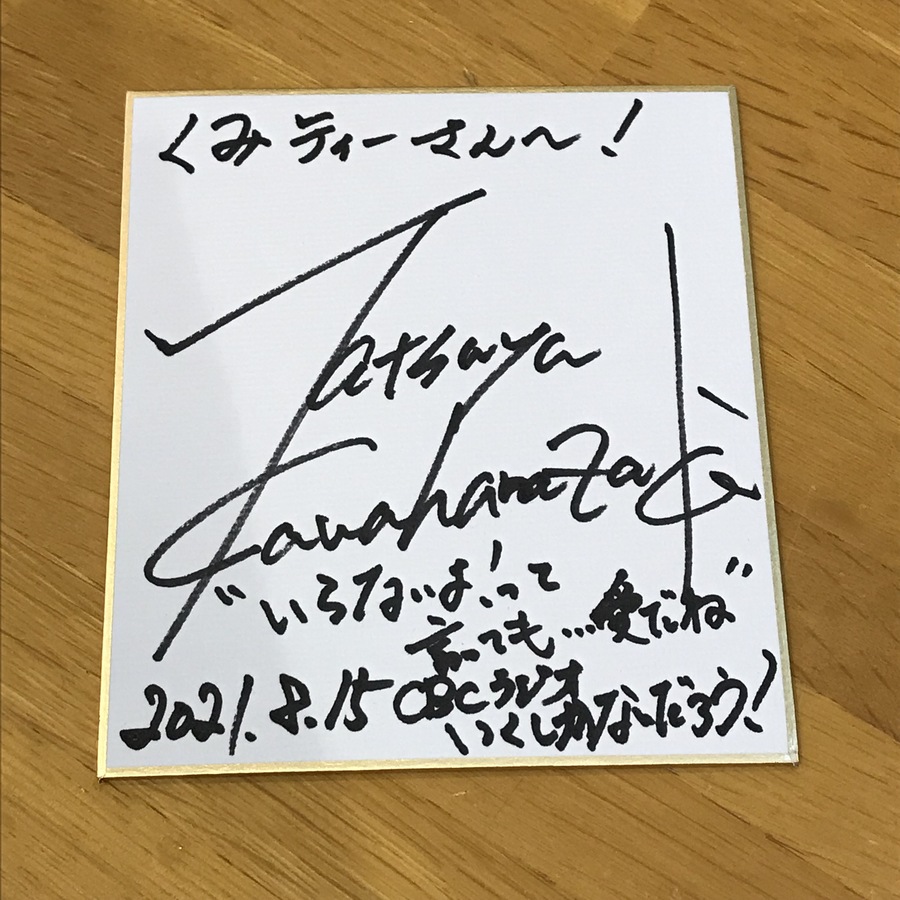 くみティーさん〜!
Tatsuya
Kawaharazaki
"いらないよ!って
言っても…愛だね"
2021.8.15 CBCラジオ
いくしかないだろう!